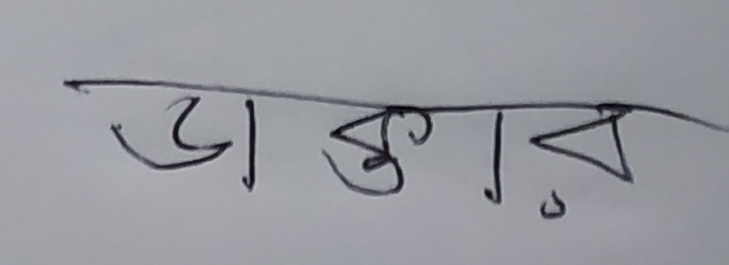 ডাক্তার